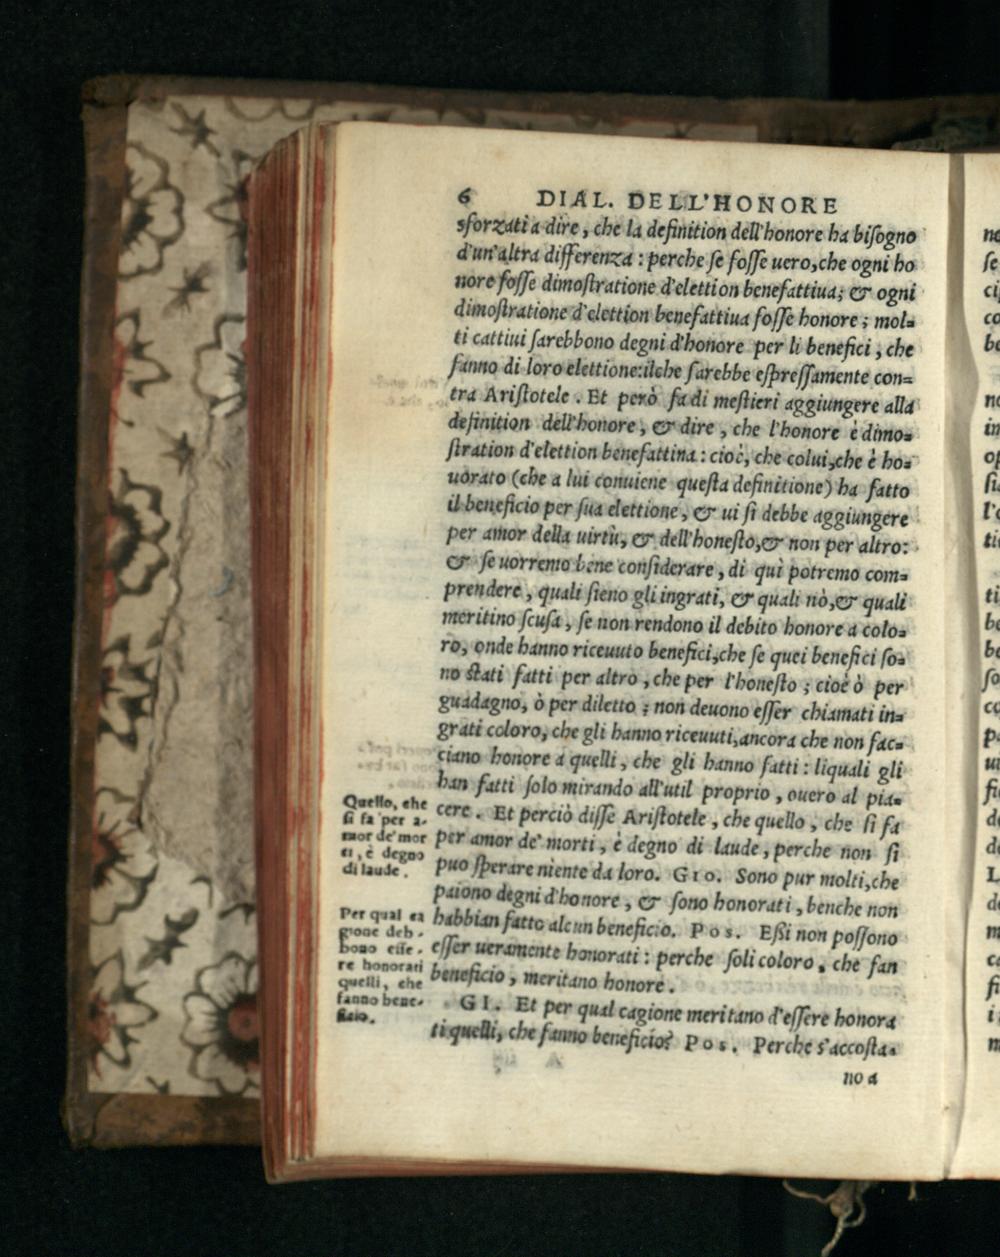 6 DIAL. DELL'HONORE
sforzati a dire, che la definition dell'honore ha biſogno
d'un'altra differenza : perche ſe foſſe uero,che ogni ho
nore foſſe dimoſtratione d'elettion benefattiua; & ogni
dimoſtratione d'elettion benefattiua foſſe honore ; mol-
ti cattiui ſarebbono degni d'honore per li benefici , che
fanno di loro elettione:ilche ſarebbe eſpreſſamente con-
tra Ariſtotele . Et però fa di meſtieri aggiungere alla
definition dell'honore , & dire , che l'honore è dimo-
ſtration d'elettion benefattiua : cioè, che colui,che è ho-
uorato (che a lui conuiene queſta definitione) ha fatto
il beneficio per ſua elettione , & ui ſi debbe aggiungere
per amor della uirtù, & dell'honeſto,& non per altro:
& ſe uorremo bene conſiderare , di quì potremo com-
prendere , quali ſieno gli ingrati, & quali nò,& quali
meritino ſcuſa , ſe non rendono il debito honore a colo-
ro, onde hanno riceuuto benefici,che ſe quei benefici ſo-
no ſtati fatti per altro , che per l'honeſto ; cioè ò per
guadagno, ò per diletto ; non deuono eſſer chiamati in-
grati coloro, che gli hanno riceuuti,ancora che non fac-
ciano honore a quelli , che gli hanno fatti : liquali gli
han fatti ſolo mirando all'util proprio , ouero al pia-
cere . Et perciò diſſe Ariſtotele , che quello , che ſi fa
per amor de' morti , è degno di laude , perche non ſi
puo ſperare niente da loro. GIO. Sono pur molti,che
paiono degni d'honore , & ſono honorati , benche non
habbian fatto alcun beneficio. POS. Eßi non poſſono
eſſer ueramente honorati : perche ſoli coloro , che fan
beneficio , meritano honore .
GI. Et per qual cagione meritano d'eſſere honora
ti quelli, che fanno beneficio? POS. Perche s'accoſta-
no a
Quello, che
ſi fa per a-
mor de' mor
ti , è degno
di laude .
Per qual ca
gione deb-
bono eſſe-
re honorati
quelli, che
fanno bene-
ficio.